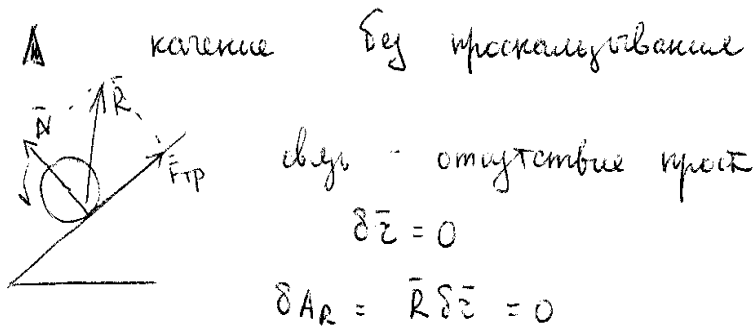 качение без проскальзывания
N̄ R̄ F̄тр
связь - отсутствие прост
δr̄ = 0
δA_R = R̄ δr̄ = 0